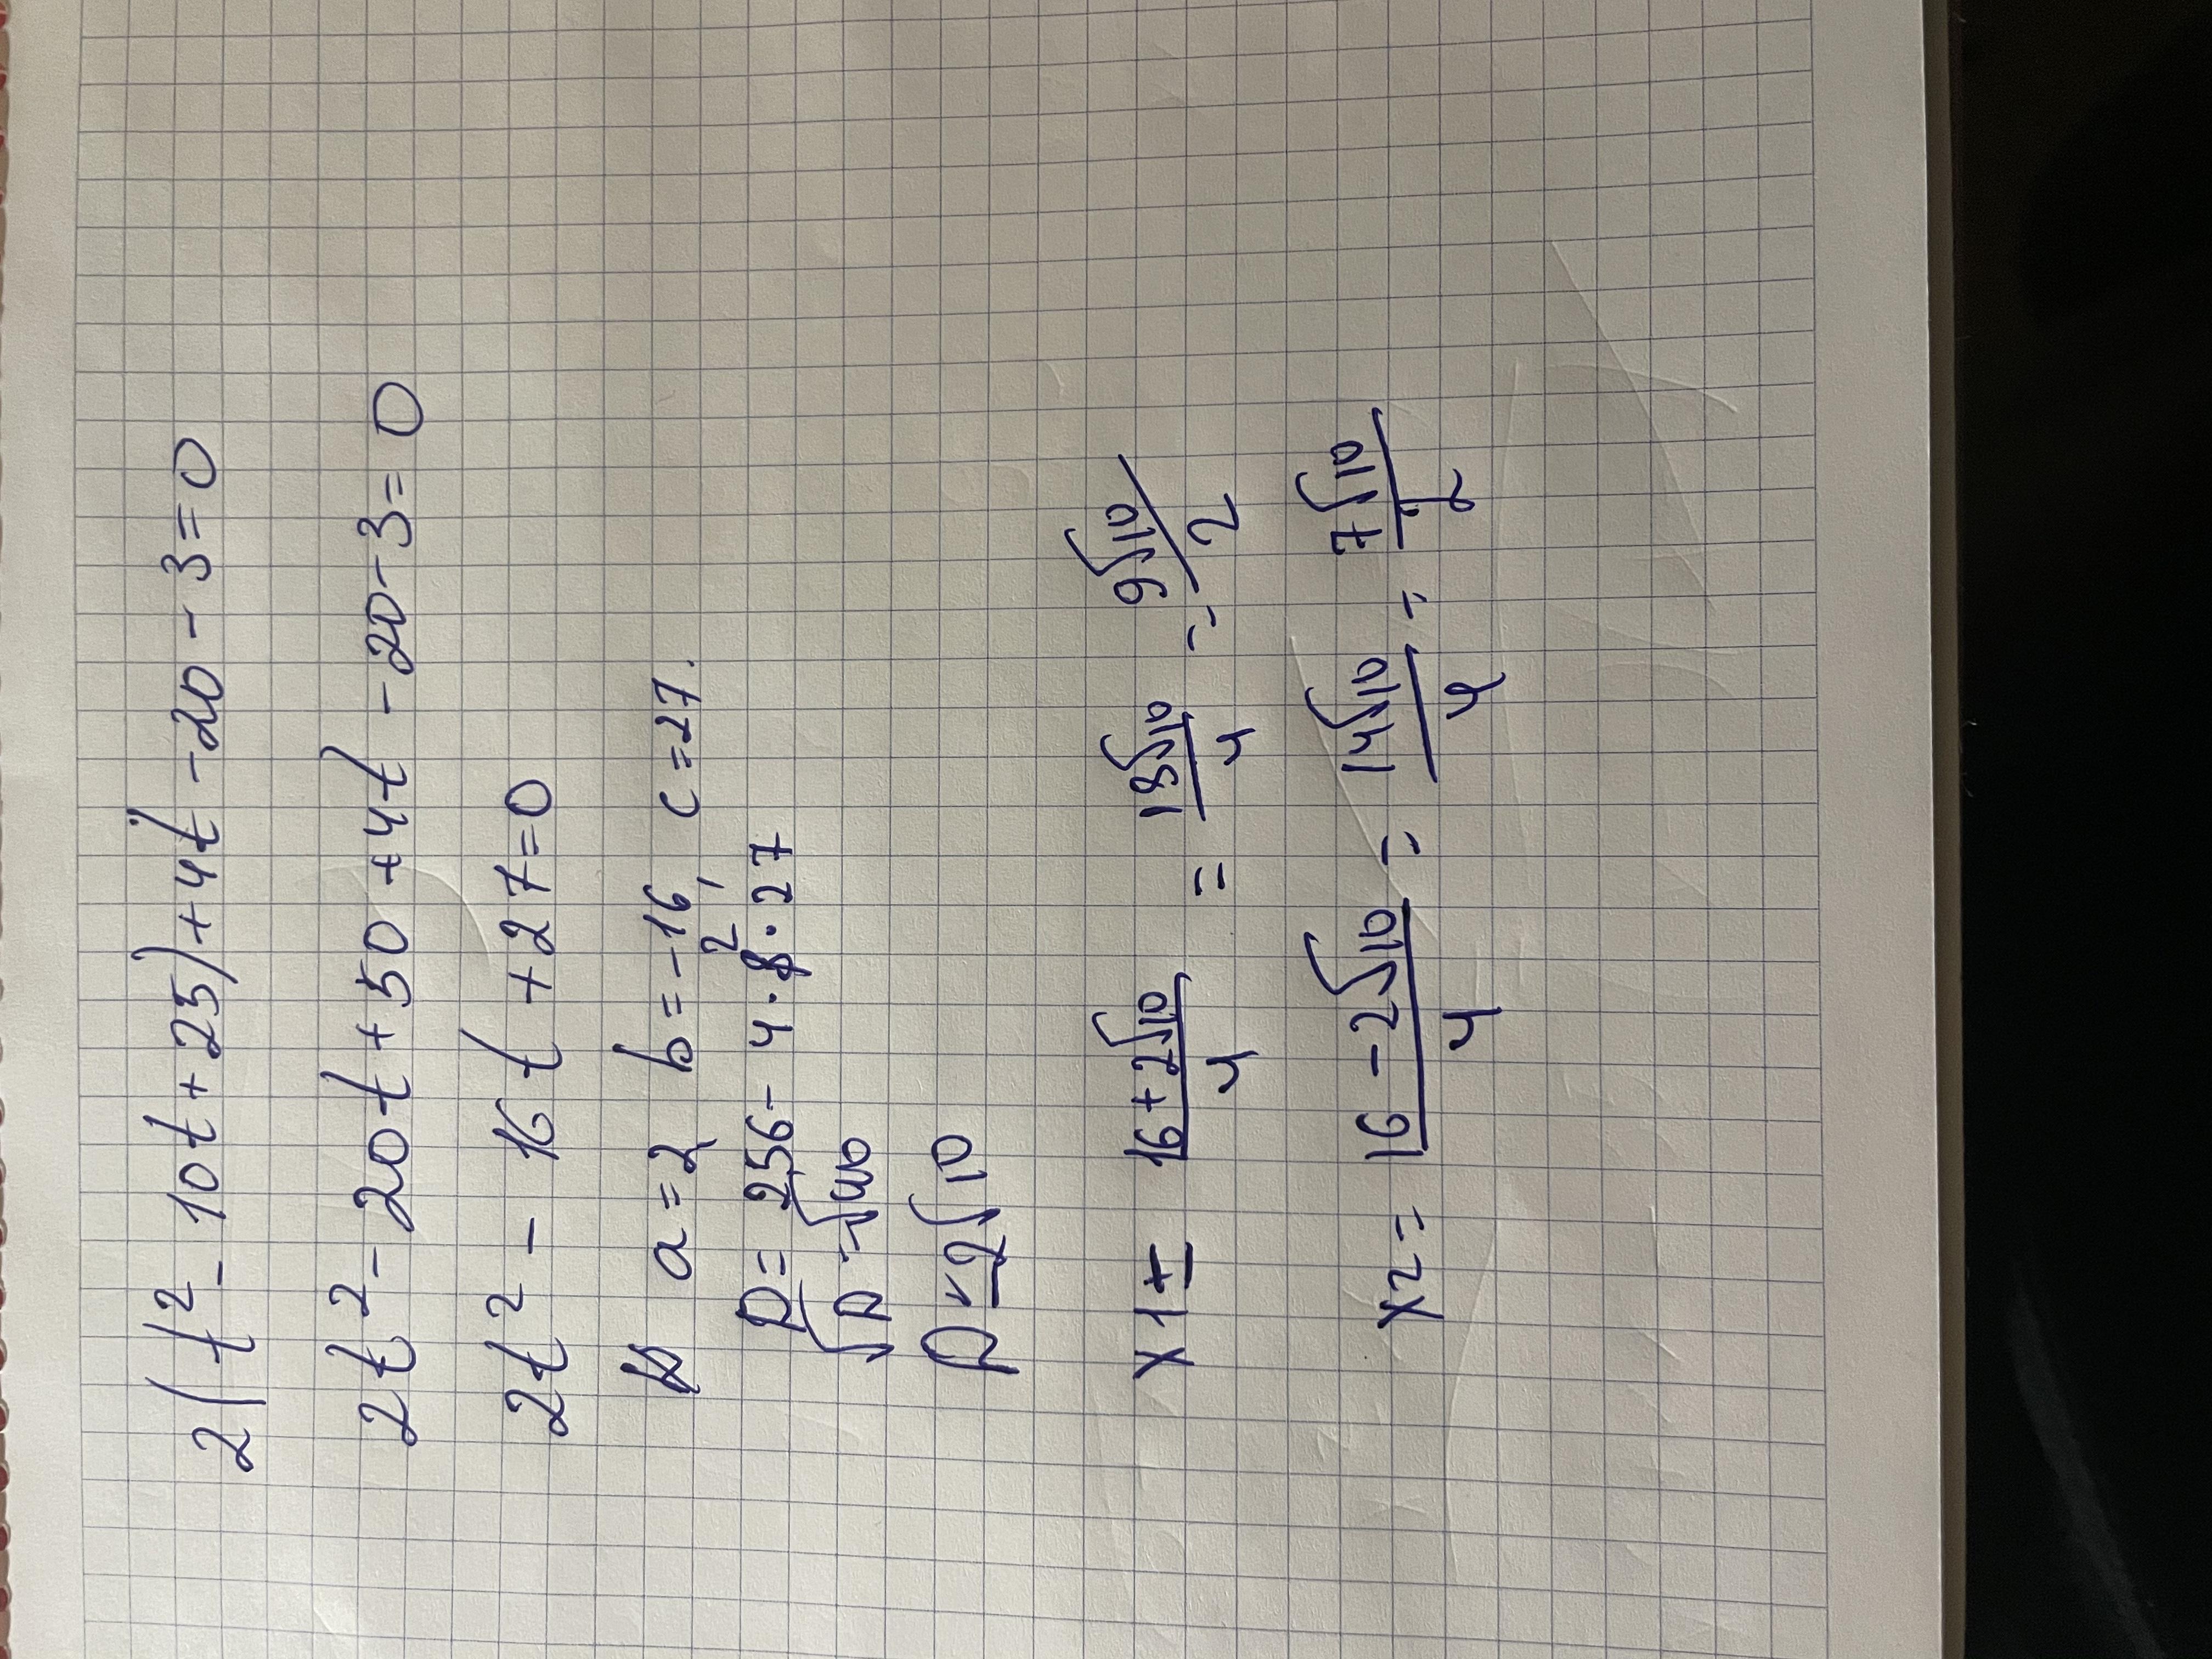 2(t² - 10t + 25) + 4t - 20 - 3 = 0
2t² - 20t + 50 + 4t - 20 - 3 = 0
2t² - 16t + 27 = 0
a = 2 b = -16, c = 27.
D = 256 - 4 · 2 · 27
√D = √40
D = 2√10
x1 = (16 + 2√10)/4 = 18√10/4 = 9√10/2
x2 = (16 - 2√10)/4 = 14√10/4 = 7√10/2